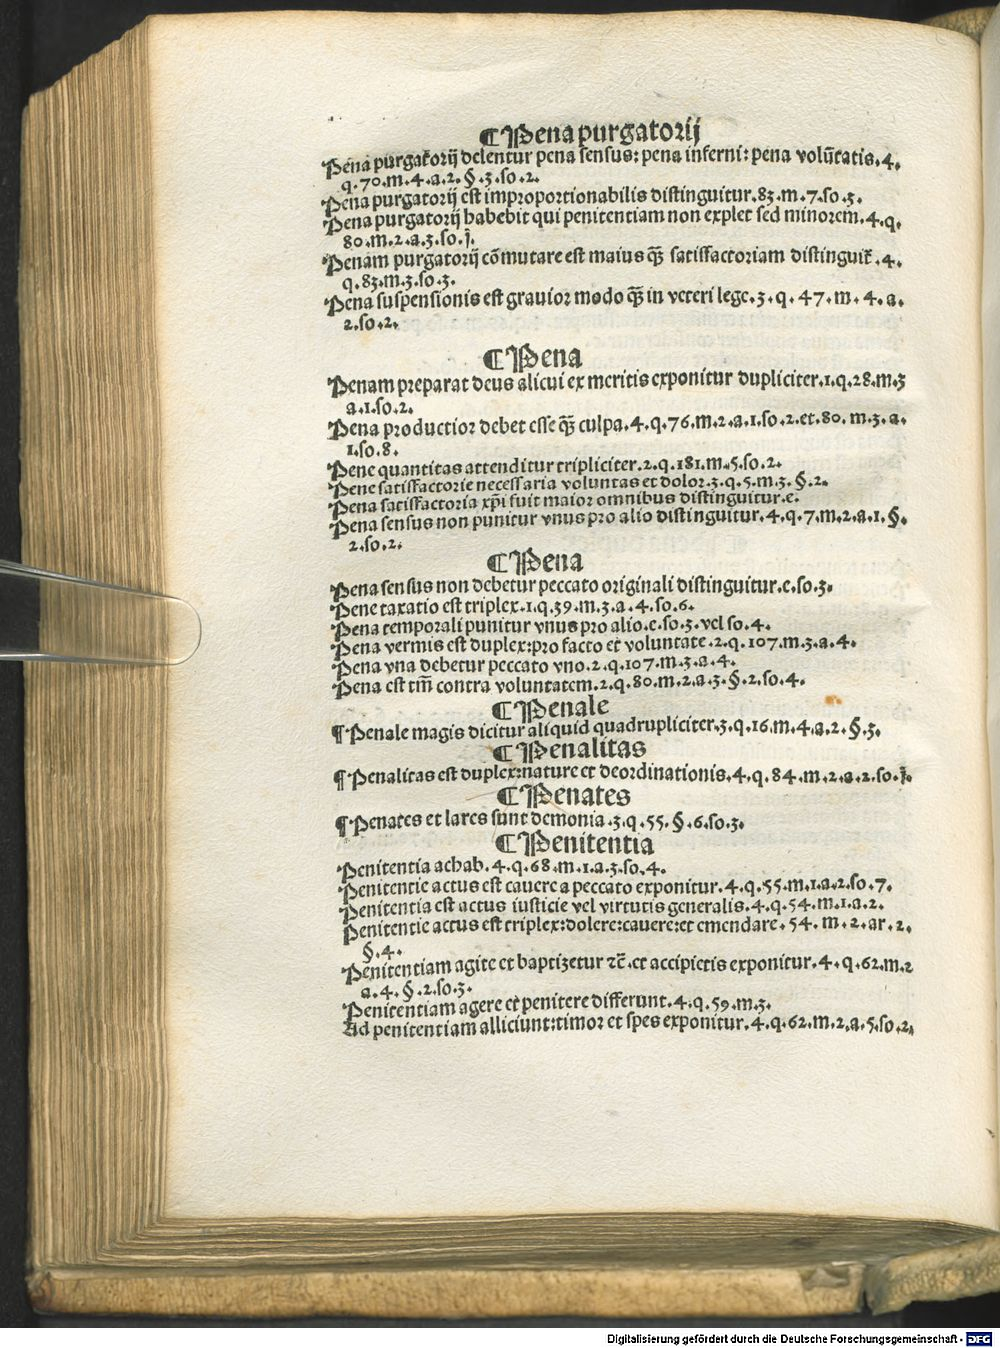 ¶ Pena purgatorij
Pena purgatorij delentur pena sensus: pena inferni: pena volūtatis.4.
q.70.m.4.a.2.§.3.so.2.
Pena purgatorij est improportionabilis distinguitur.83.m.7.so.3.
Pena purgatorij habebit qui penitentiam non explet sed minorem.4.q.
80.m.2.a.3.so.j.
Penam purgatorij cōmutare est maius q̄ȝ satisfactoriam distinguit᷑.4.
q.83.m.3.so.3.
Pena suspensionis est grauior modo q̄ȝ in veteri lege.3.q.47.m.4.a.
2.so.2.
¶ Pena
Penam preparat deus alicui ex meritis exponitur dupliciter.1.q.28.m.3
a.1.so.2.
Pena productior debet esse q̄ȝ culpa.4.q.76.m.2.a.1.so.2.et.80.m.3.a.
1.so.8.
Pene quantitas attenditur tripliciter.2.q.181.m.5.so.2.
Pene satisfactorie necessaria voluntas et dolor.3.q.5.m.3.§.2.
Pena satisfactoria xp̄i fuit maior omnibus distinguitur.e.
Pena sensus non punitur vnus pro alio distinguitur.4.q.7.m.2.a.1.§.
2.so.2.
¶ Pena
Pena sensus non debetur peccato originali distinguitur.e.so.3.
Pene taxatio est triplex.1.q.39.m.3.a.4.so.6.
Pena temporali punitur vnus pro alio.e.so.3.vel so.4.
Pena vermis est duplex: pro facto et voluntate.2.q.107.m.3.a.4.
Pena vna debetur peccato vno.2.q.107.m.3.a.4.
Pena est tm̄ contra voluntatem.2.q.80.m.2.a.3.§.2.so.4.
¶ Penale
¶ Penale magis dicitur aliquid quadrupliciter.3.q.16.m.4.a.2.§.3.
¶ Penalitas
¶ Penalitas est duplex: nature et deordinationis.4.q.84.m.2.a.2.so.j.
¶ Penates
¶ Penates et lares sunt demonia.3.q.55.§.6.so.3.
¶ Penitentia
Penitentia achab.4.q.68.m.1.a.3.so.4.
Penitentie actus est cauere a peccato exponitur.4.q.55.m.1.a.2.so.7.
Penitentia est actus iusticie vel virtutis generalis.4.q.54.m.1.a.2.
Penitentie actus est triplex: dolere: cauere: et emendare.54.m.2.ar.2.
§.4.
Penitentiam agite et baptizetur ⁊c̄.et accipietis exponitur.4.q.62.m.2
a.4.§.2.so.3.
Penitentiam agere et penitere differunt.4.q.59.m.3.
Ad penitentiam alliciunt: timor et spes exponitur.4.q.62.m.2.a.5.so.2.
Digitalisierung gefördert durch die Deutsche Forschungsgemeinschaft - DFG